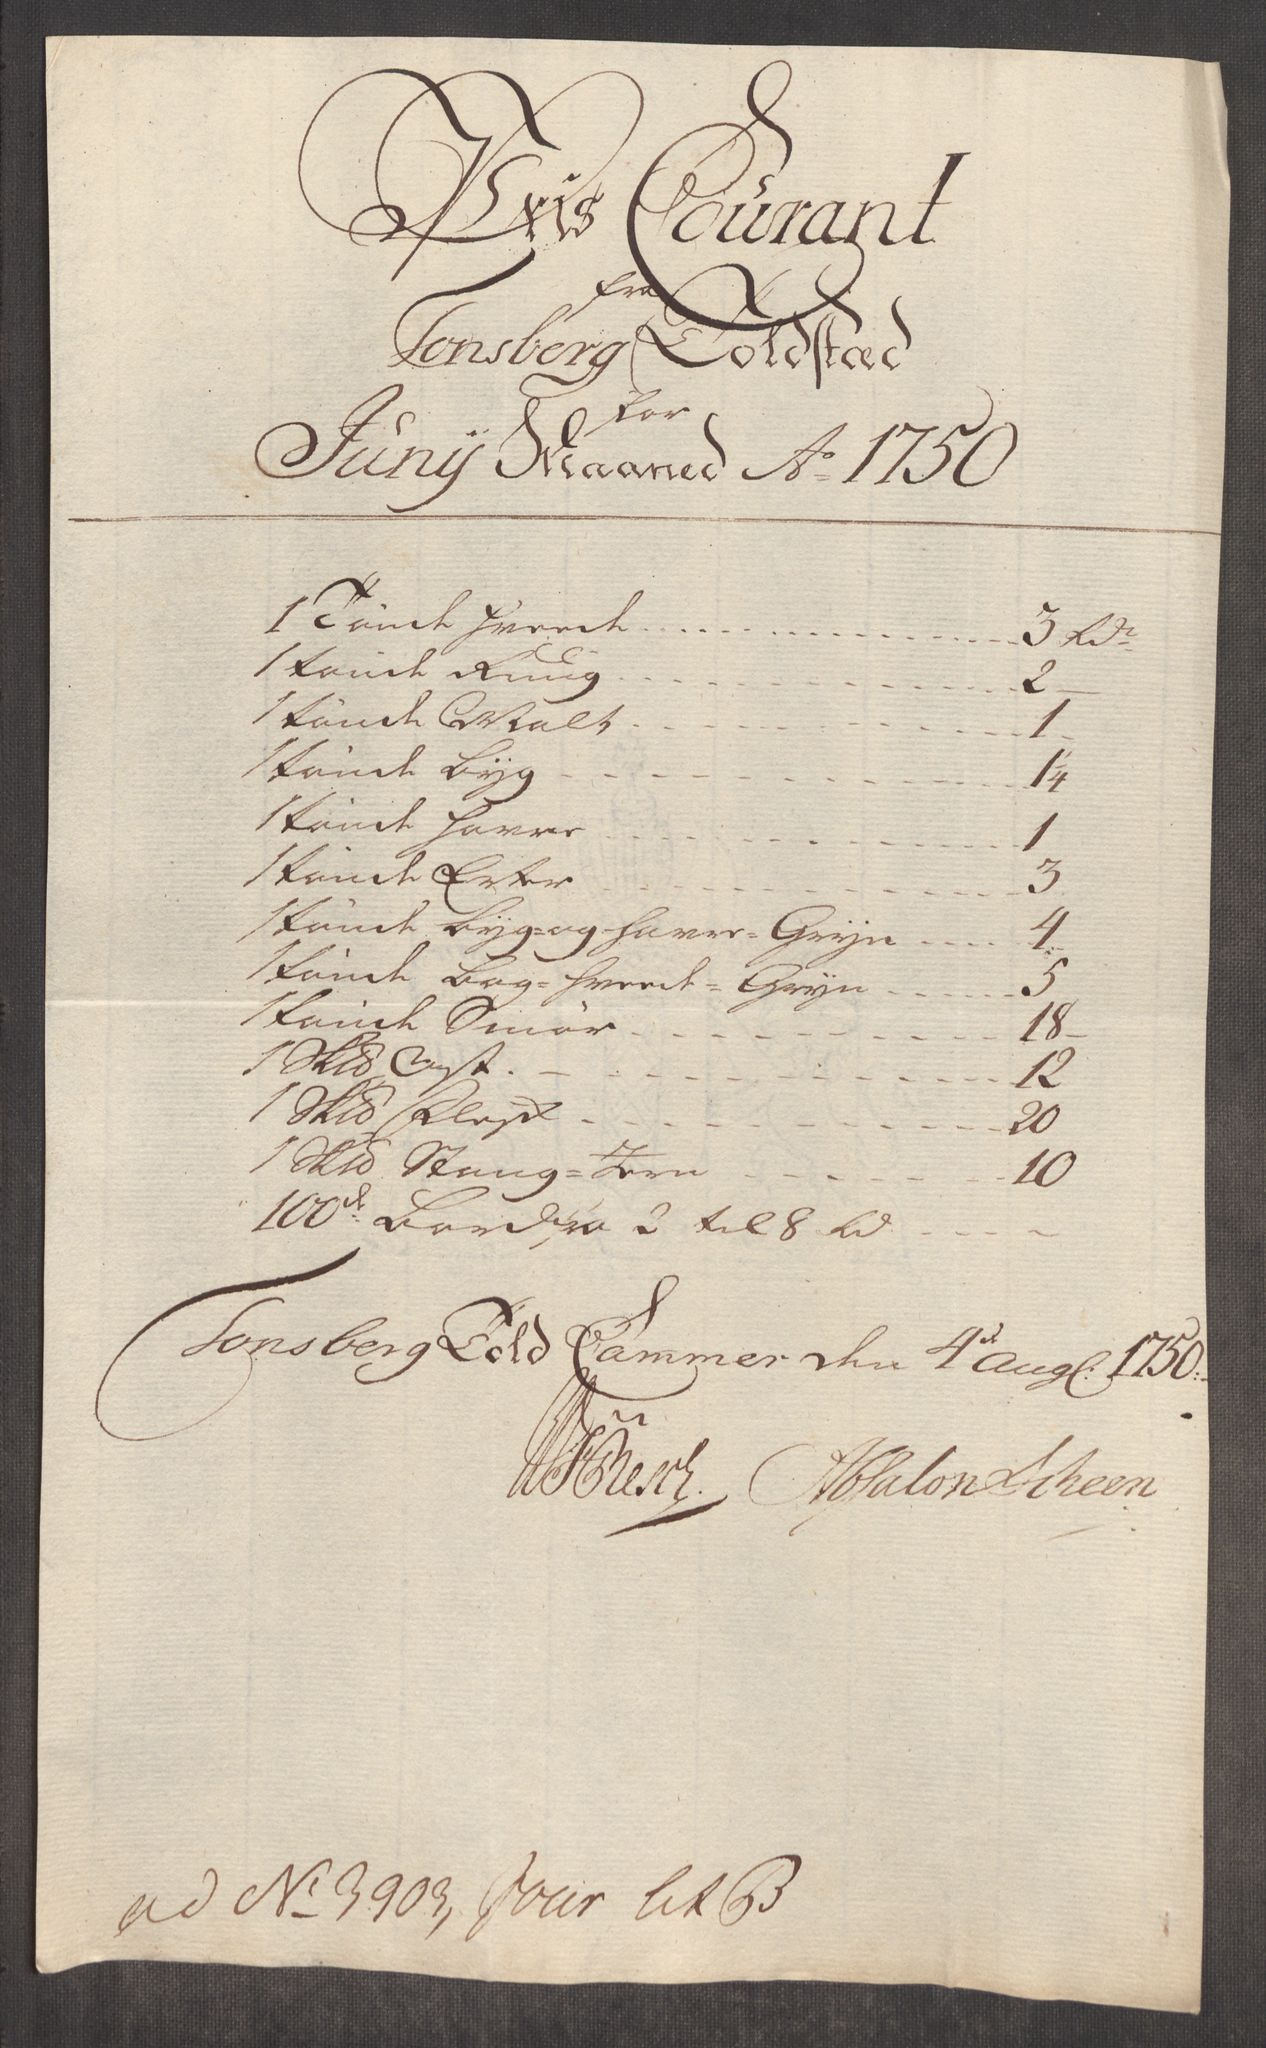 Priis Courant
fra
Tonsberg Toldsted
for
Junij Maaned Ao 1750
1 Tønde Hvede 3 Rdr
1 tønde Ruug 2
1 tønde Malt 1
1 tønde Byg 1 1/4
1 tønde Havre 1
1 tønde Erter 3
1 tønde Byg= og Havre= Gryn 4
1 tønde Bog= Hvede= Gryn 5
1 tønde Smør 18
1 Skd Ost 12
1 Skd Flesk 20
1 Skd Stang= Jern 10
100de Bord fra 2 til 8 Rd
Tonsberg Told Cammer den 4de Augl: 1750
Resch. Absalon Scheen
ad No 3903, Jour lit B